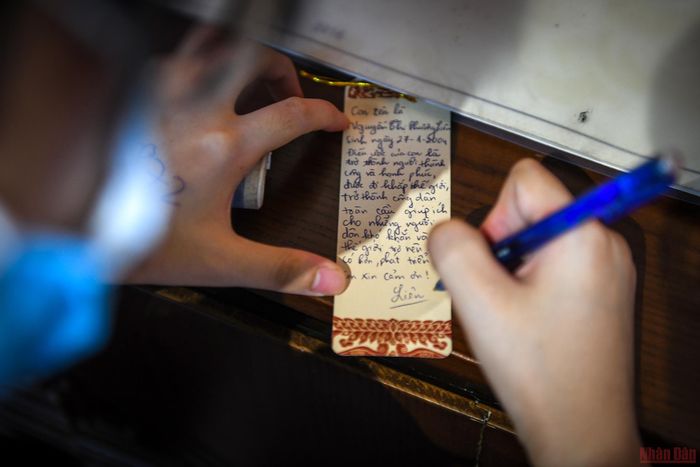 Con tên là
Nguyễn Thị Phương Liên
Sinh ngày 27-1-2004
Điều ước của con là
trở thành người thành
công và hạnh phúc,
được đi khắp thế giới,
trở thành công dân
toàn cầu giúp ích
cho những người
dân khó khăn và
thế giới trở nên
có hơn, phát triển
Con xin cảm ơn!
Liên
Nhân Dân